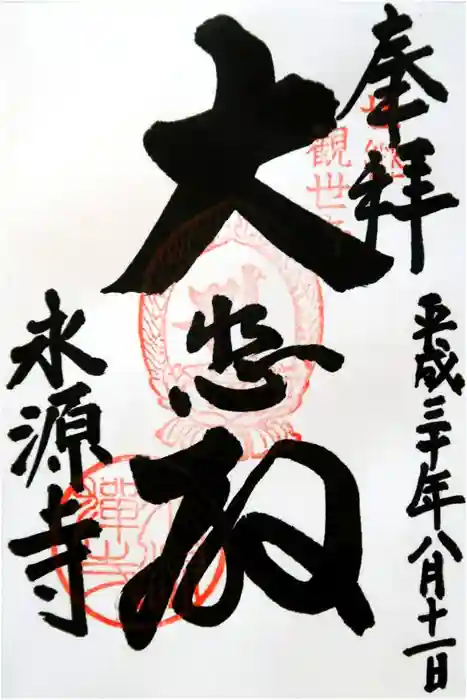 奉拝
平成三十年八月十一日
世繼
觀世音
大悲殿
永源寺